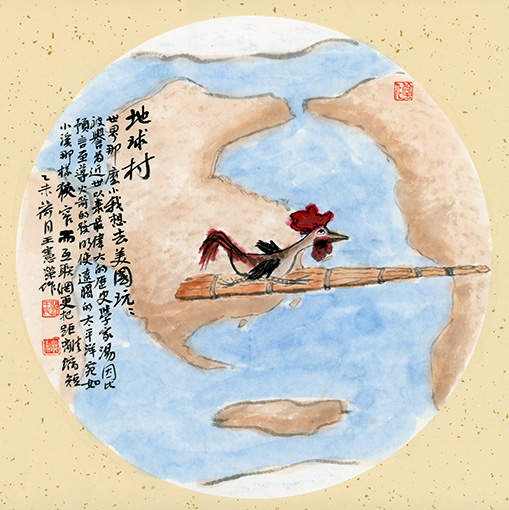 地球村
世界那麼小我想去美国玩〻
被譽为近世以来最偉大的歷史學家湯因比
預言 導火箭的發明使遼闊的太平洋宛如
小溪那樣狹窄而互联網更把距離縮短
乙未荷月王憲榮作